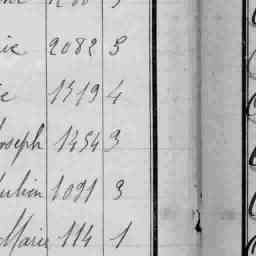 2082 5
1519 4
Joseph 1454 3
Julien 1091 3
Marie 114 1